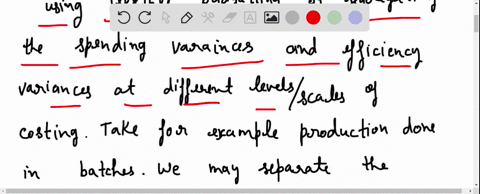 using
the spending varainces and efficiency
variances at different levels/scales of
costing. Take for example production done
in batches. We may separate the